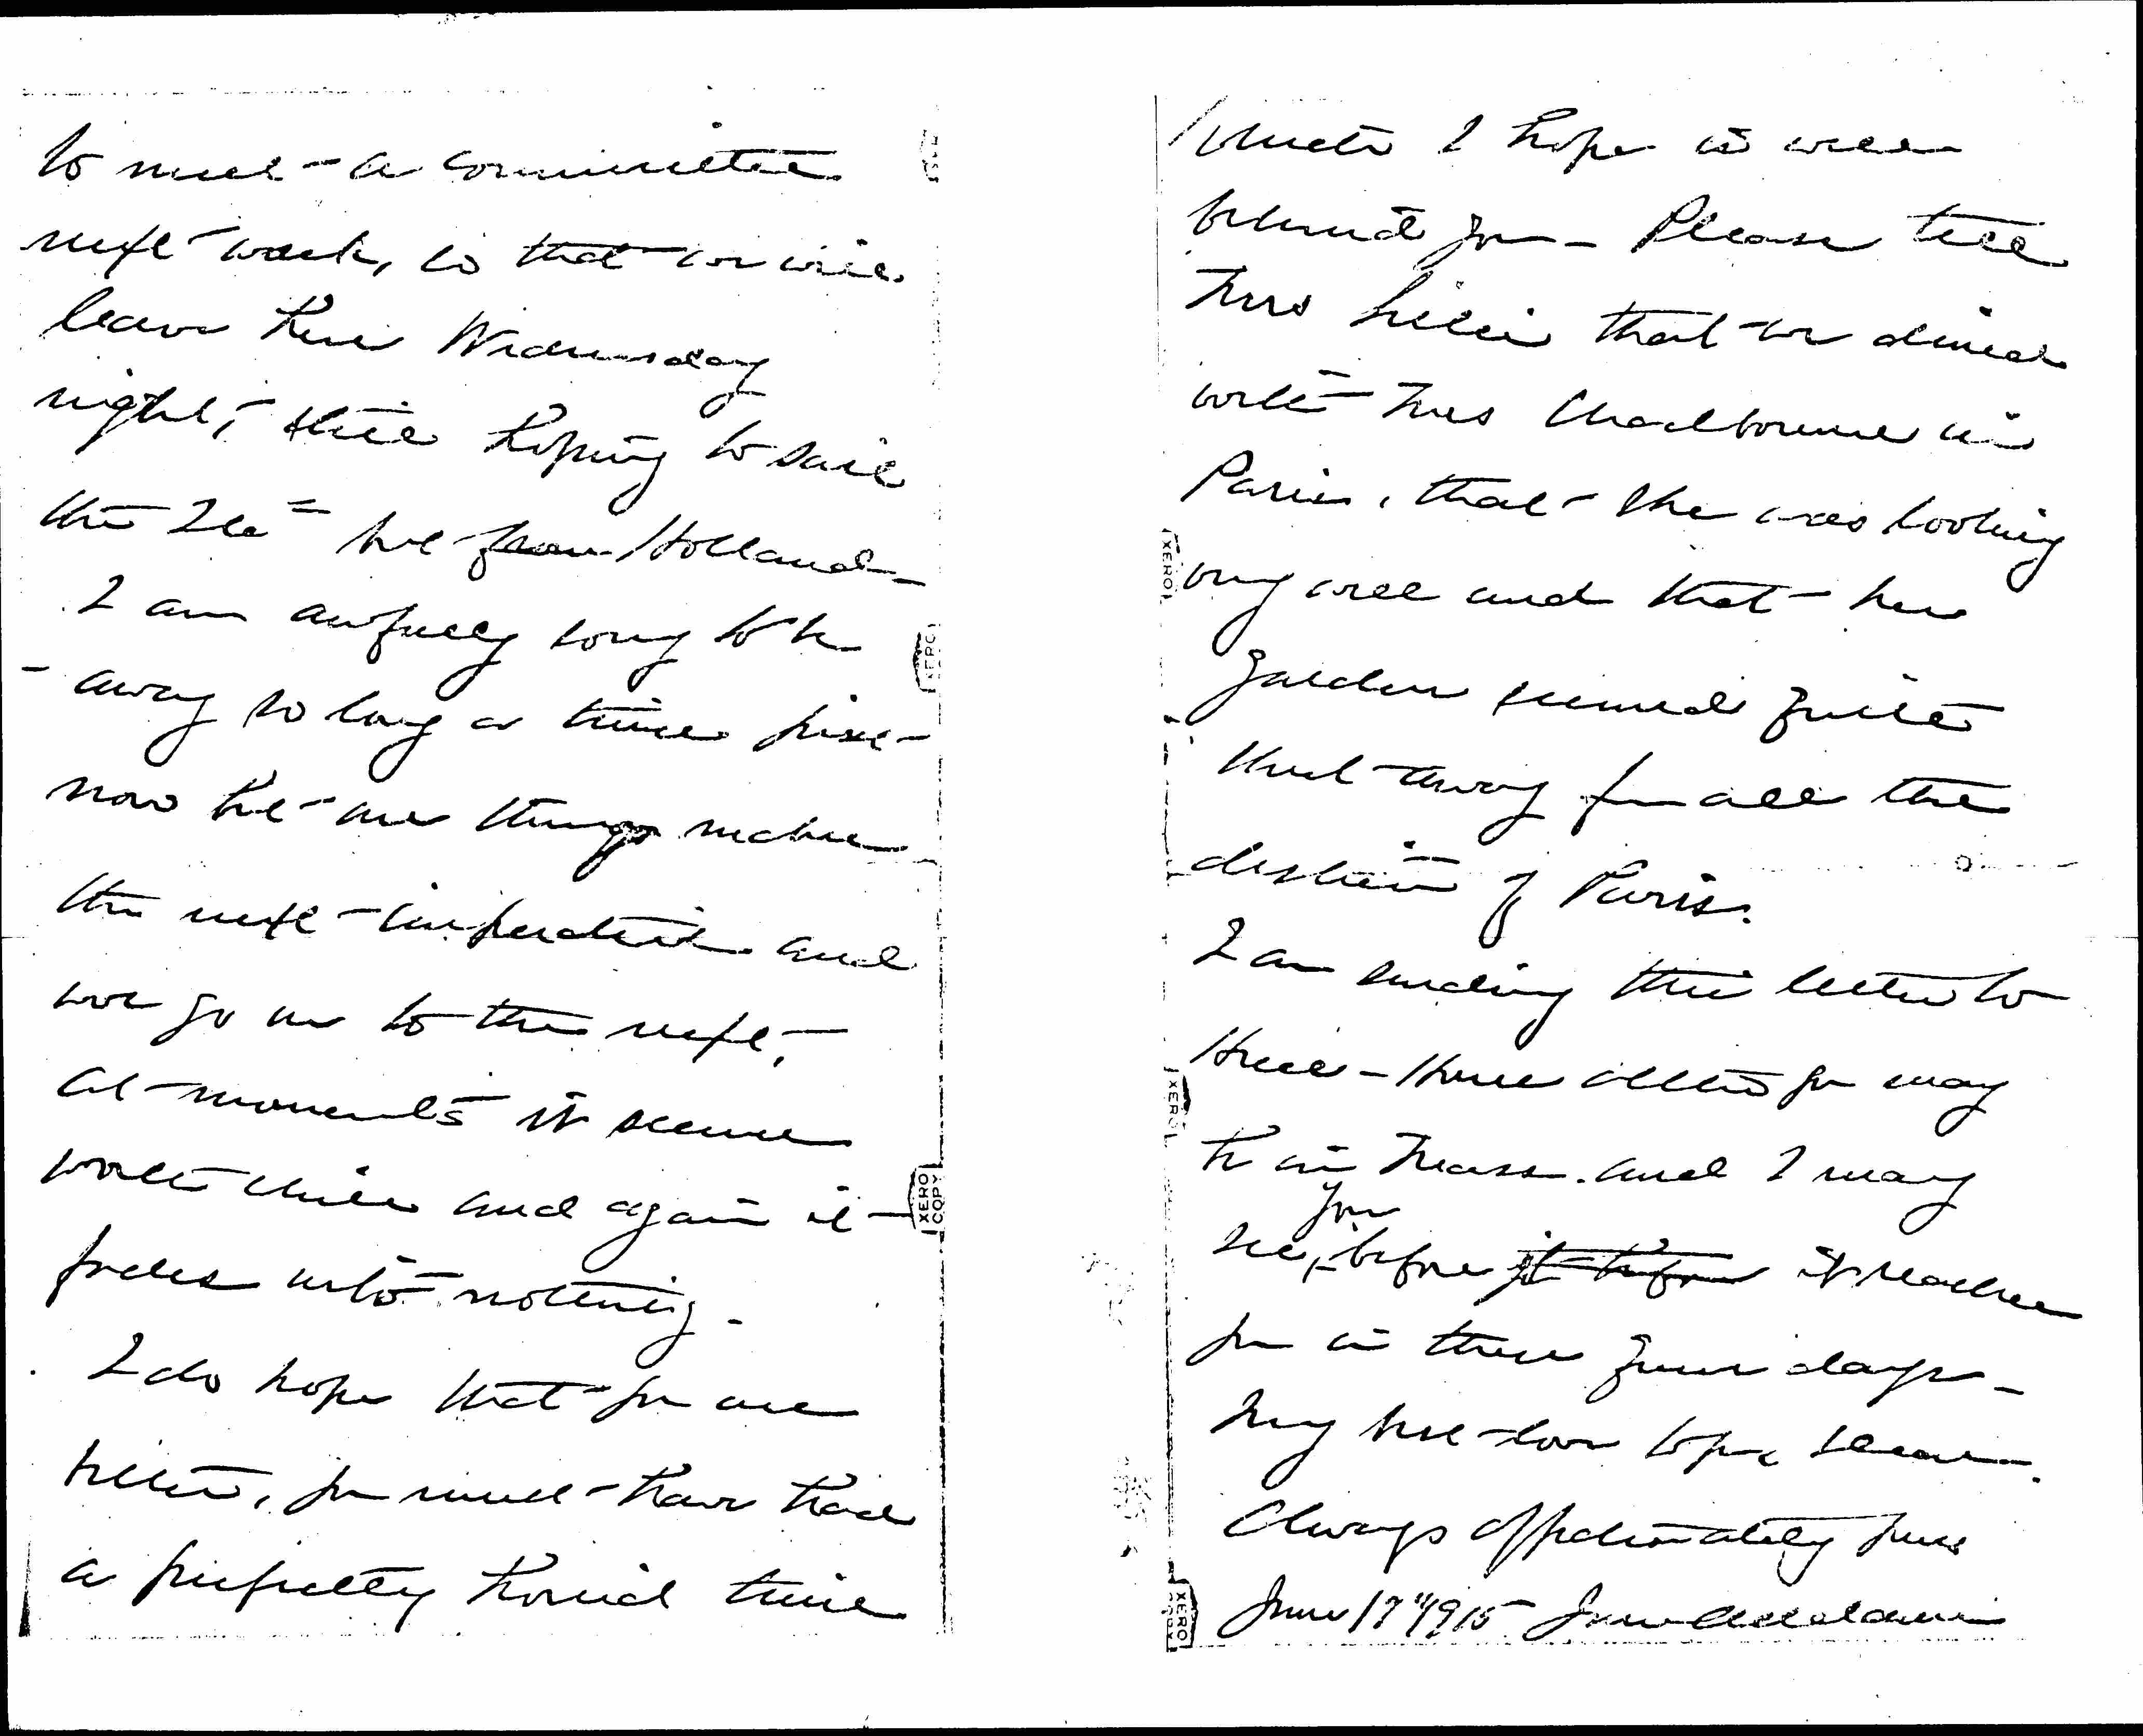 to meet a committee
next week, so that we will
leave here Wednesday
night, still hoping to sail
the 26" but from Holland —
I am awfully sorry to be
away so long a time just
now but one thing makes
the next important and
we go on to the next,
at moments it seems
worth while and again it
fades into nothing.
I do hope that you are
better, you must have had
a perfectly horrid time
which I hope is well
behind you — Please tell
Miss that we dined
with Miss Chadbourne in
Paris, that she was looking
very well and that her
garden seemed quite
shut away from all the
of Paris.
I am sending this letter to
Hull-House altho you may
be in Mass. and I may
see you before it reaches
you in these June days —
My best love to you dear.
Always affectionately yours
June 17" 1915 Jane Addams
XERO
XERO
XERO
COPY
XERO
XERO
XERO
COPY